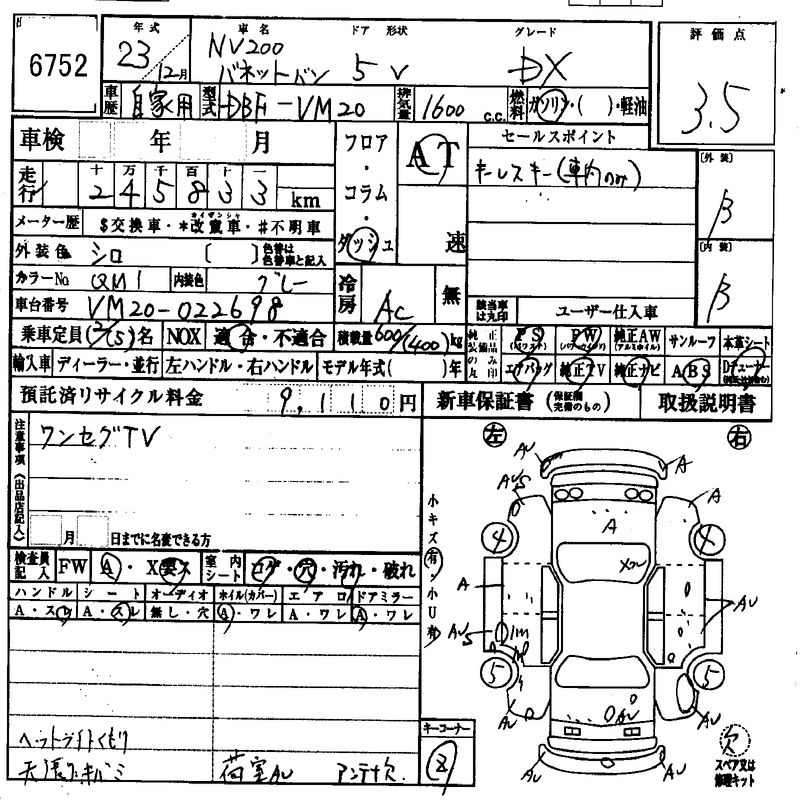 6752
年式 車名 ドア 形状 グレード 評価点
23 / 12月 NV200 バネットバン 5 V DX 3.5
車歴 自家用 型式 DBF-VM20 排気量 1600 c.c. 燃料 ガソリン・( )・軽油
車検 年 月 フロア・コラム・ダッシュ AT 速
セールスポイント
キーレスキー(車内のみ)
[外装] B
[内装] B
走行 十 万 千 百 十 一
2 4 5 8 3 3 km
メーター歴 $交換車・*改竄車・#不明車
カイザンシャ
外装色 シロ [ ] 色替は色替車と記入
カラーNo QM1 内装色 グレー
冷房 AC 無
車台番号 VM20-022698
該当車は丸印 ユーザー仕入車
乗車定員 2/(5)名 NOX 適合・不適合 積載量 600/(400)kg
純正装備品のみ丸印 PS (パワステ) PW (パワーウインド) 純正AW (アルミホイル) サンルーフ 本革シート
輸入車 ディーラー・並行 左ハンドル・右ハンドル モデル年式( )年
エアバッグ 純正TV 純正ナビ ABS Dチューナー
預託済リサイクル料金 9,110円 新車保証書 (保証欄完備のもの) 取扱説明書
注意事項(出品店記入)
ワンセグTV
月 日までに名変できる方
検査員記入 FW A・X要ス 室内シート コゲ・穴・汚れ・破れ
ハンドル シート オーディオ ホイル(カバー) エアロ ドアミラー
A・スレ A・スレ 無し・穴 A・ワレ A・ワレ A・ワレ
ヘッドライトくもり
天張リキバミ 荷室AU アンテナ欠
小キズ有 小U有
左 右
AU A
AUS A
A
4 4
A AU
AUS
5 5
AU AU AU
A A
キーコーナー
欠
スペア又は修理キット